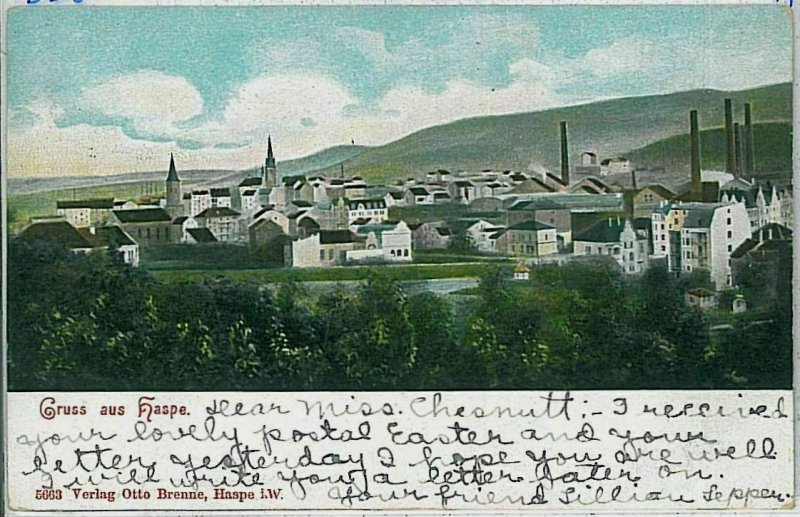 Gruss aus Haspe. Dear Miss. Chesnutt:- I received
your lovely postal Easter and your
letter yesterday I hope you are well.
I will write you a letter later on.
5663 Verlag Otto Brenne, Haspe i.W. Your friend Lillian Lepper.